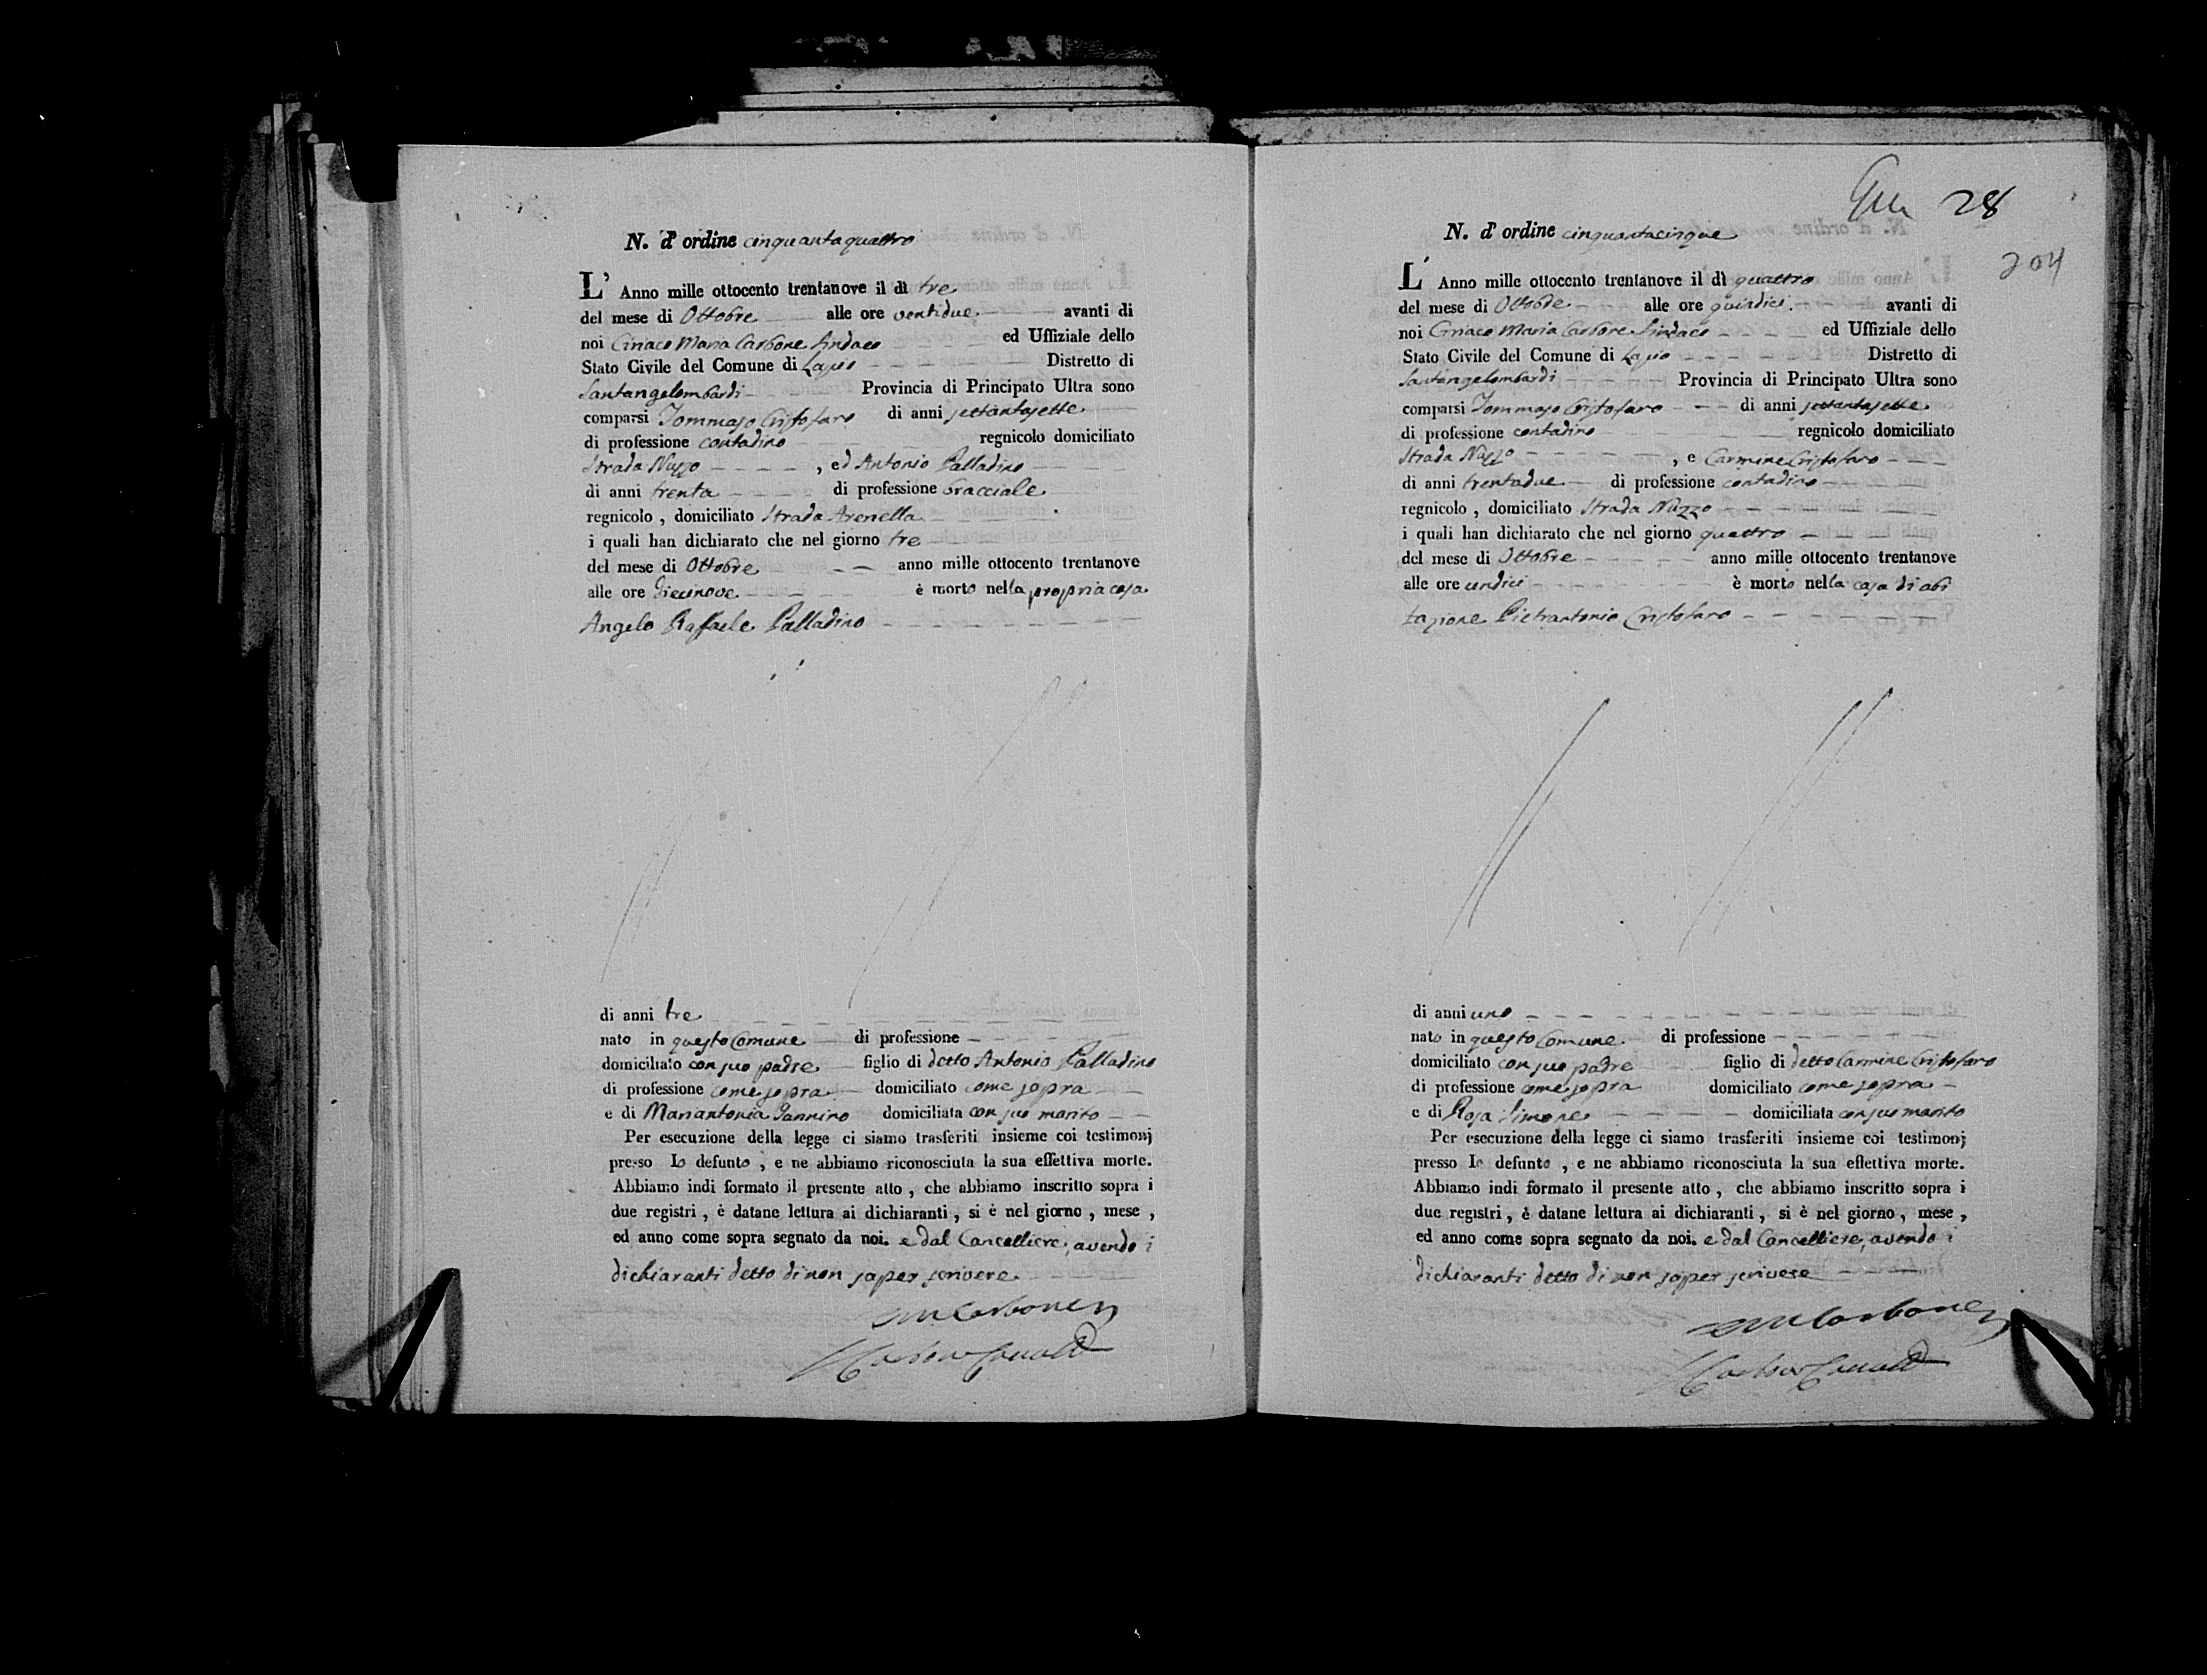 N. d' ordine cinquantaquattro
L' Anno mille ottocento trentanove il dì tre
del mese di Ottobre alle ore ventidue avanti di
noi Ciriaco Maria Carbone Sindaco ed Uffiziale dello
Stato Civile del Comune di Lapio Distretto di
Santangelombardi Provincia di Principato Ultra sono
comparsi Tommaso Cristofaro di anni settantasette
di professione contadino regnicolo domiciliato
Strada Nuzzo , ed Antonio Palladino
di anni trenta di professione bracciale
regnicolo , domiciliato Strada Arenella
i quali han dichiarato che nel giorno tre
del mese di Ottobre anno mille ottocento trentanove
alle ore diecinove è morto nella propria casa
Angelo Raffaele Palladino
di anni tre
nato in questo Comune di professione
domiciliato con suo padre figlio di detto Antonio Palladino
di professione come sopra domiciliato come sopra
e di Mariantonia Iannino domiciliata con suo marito
Per esecuzione della legge ci siamo trasferiti insieme coi testimonj
presso lo defunto , e ne abbiamo riconosciuta la sua effettiva morte.
Abbiamo indi formato il presente atto , che abbiamo inscritto sopra i
due registri , è datane lettura ai dichiaranti , si è nel giorno , mese ,
ed anno come sopra segnato da noi. e dal Cancelliere, avendo i
dichiaranti detto di non saper scrivere
Carbone
28
204
N. d' ordine cinquantacinque
L' Anno mille ottocento trentanove il dì quattro
del mese di Ottobre alle ore quindici avanti di
noi Ciriaco Maria Carbone Sindaco ed Uffiziale dello
Stato Civile del Comune di Lapio Distretto di
Santangelombardi Provincia di Principato Ultra sono
comparsi Tommaso Cristofaro di anni settantasette
di professione contadino regnicolo domiciliato
Strada Nuzzo , e Carmine Cristofaro
di anni trentadue di professione contadino
regnicolo , domiciliato Strada Nuzzo
i quali han dichiarato che nel giorno quattro
del mese di Ottobre anno mille ottocento trentanove
alle ore undici è morto nella casa di abi
tazione Pietrantonio Cristofaro
di anni uno
nato in questo Comune di professione
domiciliato con suo padre figlio di detto Carmine Cristofaro
di professione come sopra domiciliato come sopra
e di Rosa Simone domiciliata con suo marito
Per esecuzione della legge ci siamo trasferiti insieme coi testimonj
presso lo defunto , e ne abbiamo riconosciuta la sua effettiva morte.
Abbiamo indi formato il presente atto , che abbiamo inscritto sopra i
due registri , è datane lettura ai dichiaranti , si è nel giorno , mese ,
ed anno come sopra segnato da noi. e dal Cancelliere, avendo i
dichiaranti detto di non saper scrivere
Carbone